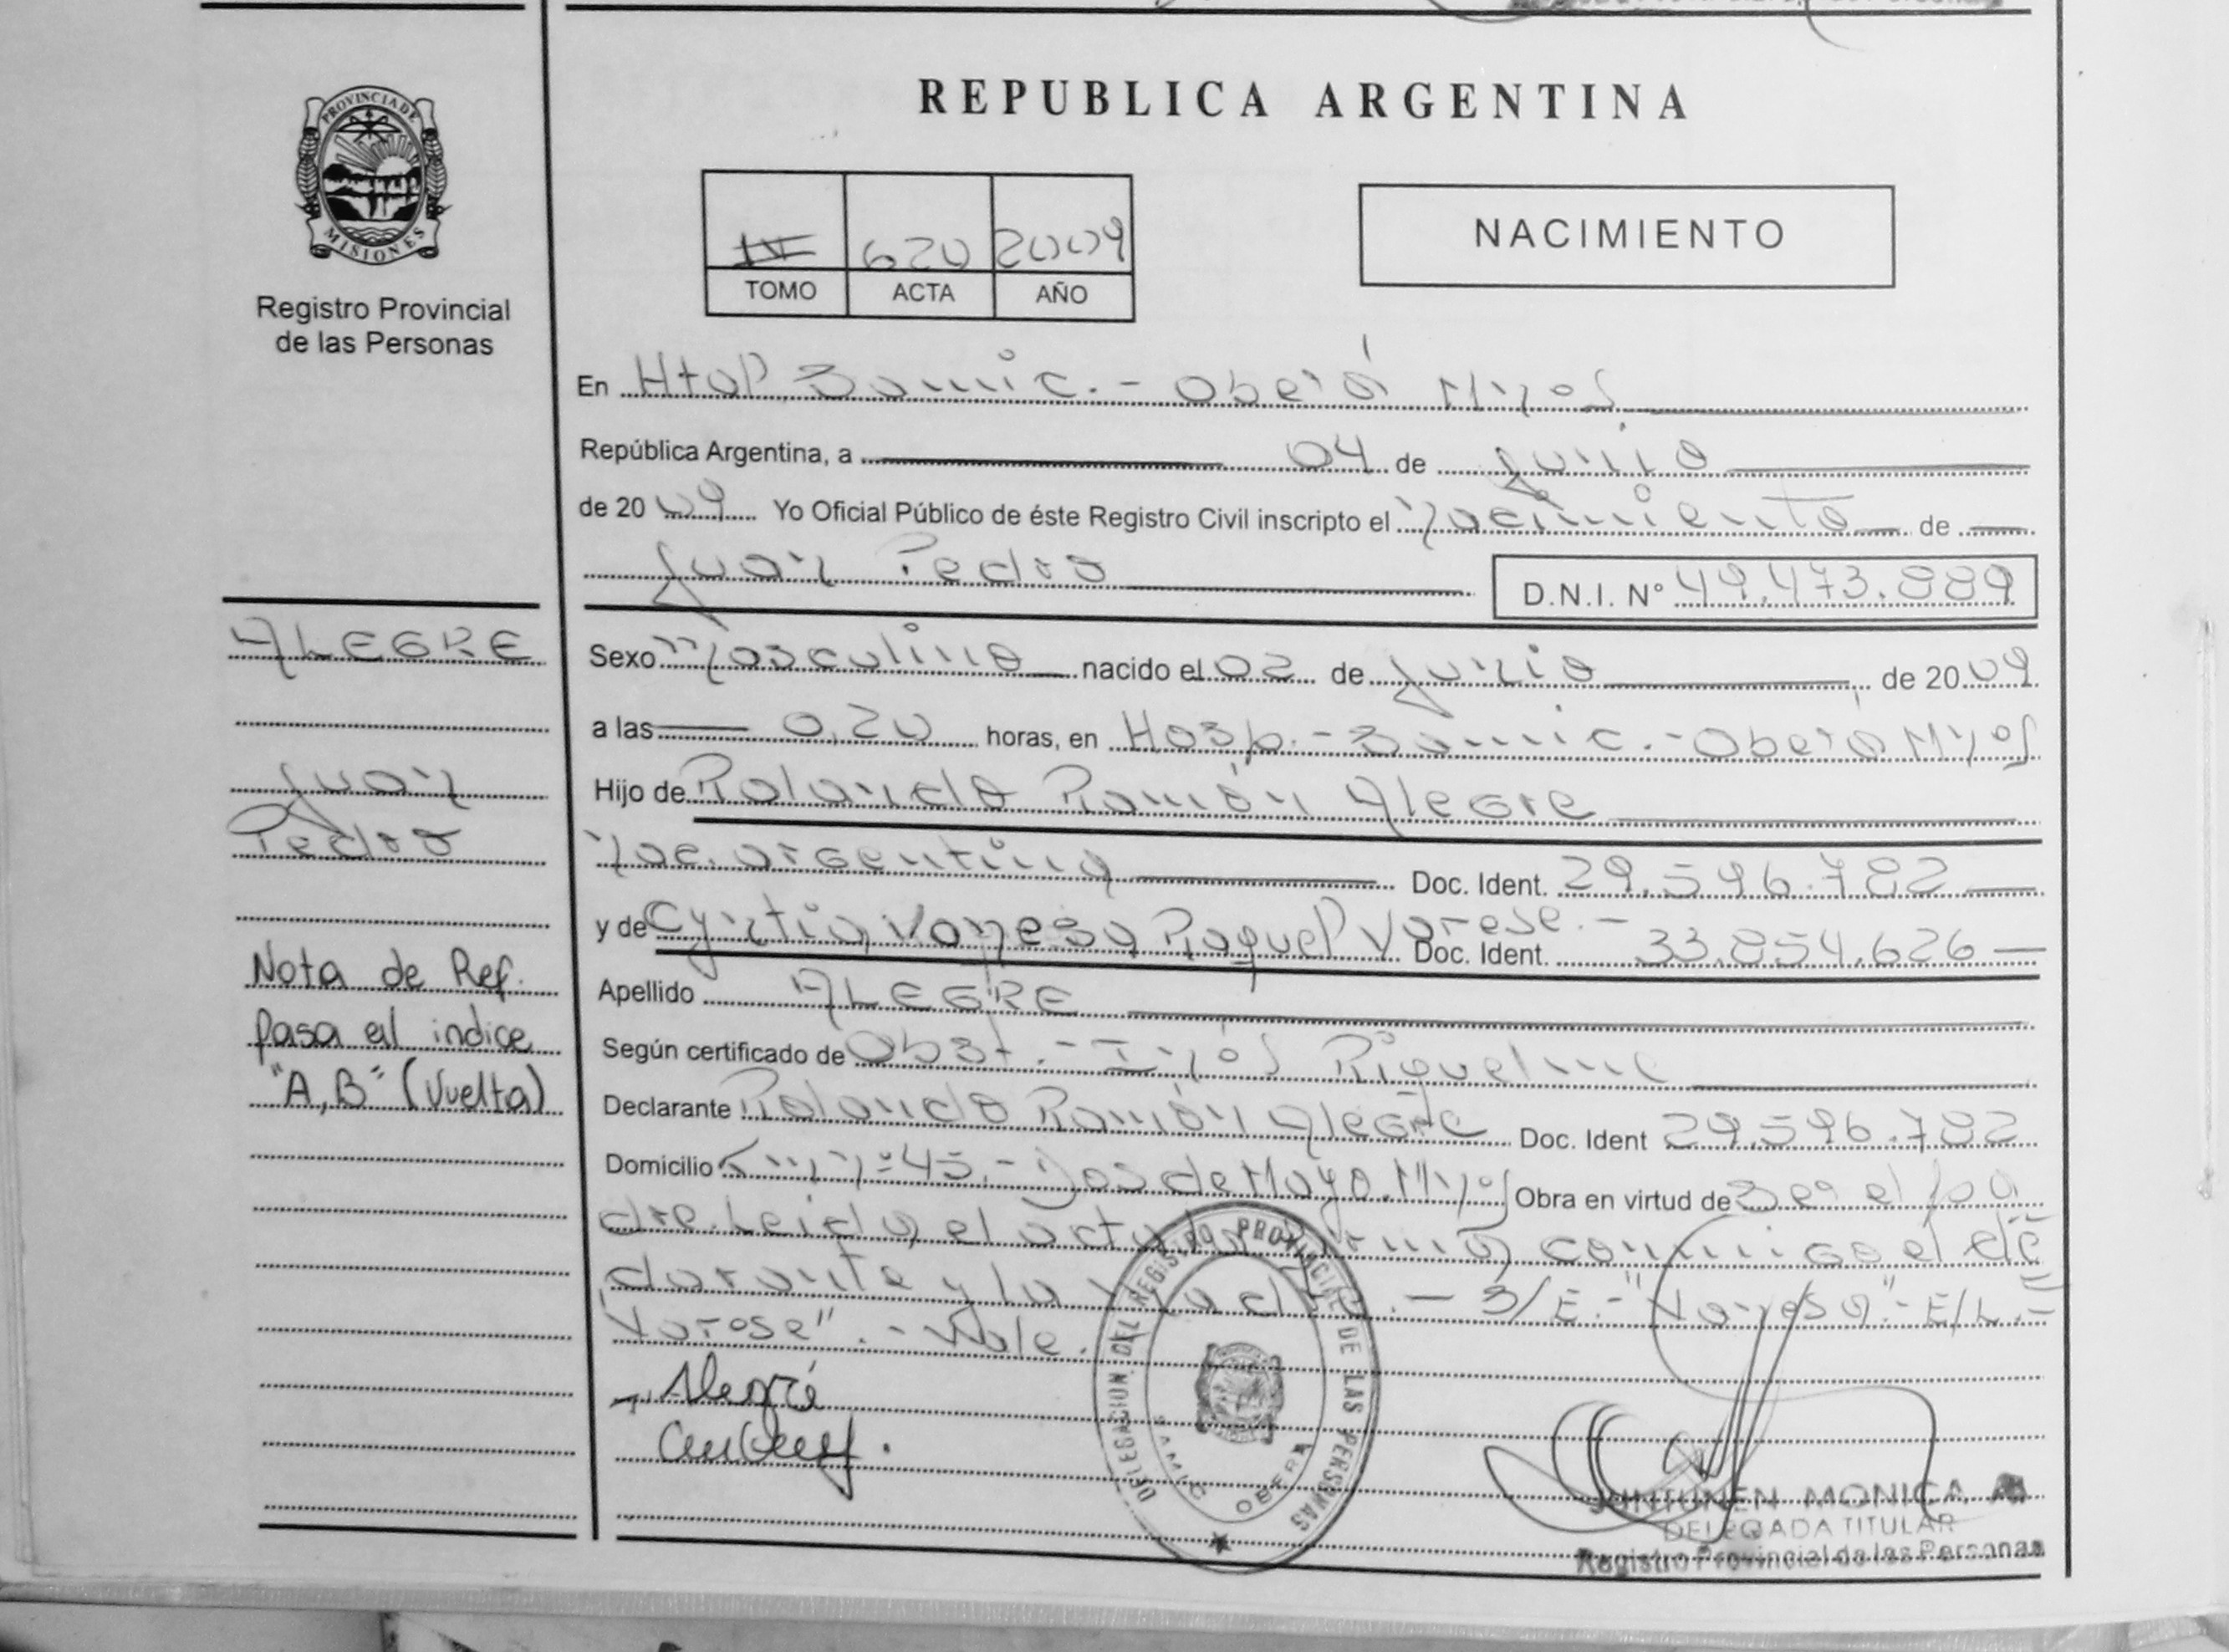 REPUBLICA ARGENTINA
PROVINCIA DE
MISIONES
Registro Provincial
de las Personas
IV 620 2009
TOMO ACTA AÑO
NACIMIENTO
En Htal Samic.- Oberá Mnes
República Argentina, a 04 de Junio
de 2009 Yo Oficial Público de éste Registro Civil inscripto el nacimiento de
Juan Pedro D.N.I. Nº 49.473.889
Sexo masculino nacido el 02 de Junio de 2009
a las 0,20 horas, en Hosp.- Samic.- Oberá Mnes
Hijo de Rolando Ramón Alegre
nac. argentina Doc. Ident. 29.596.782
y de Vanesa Raquel Varese.- Doc. Ident. 33.854.626
Apellido ALEGRE
Según certificado de Obst.- Inés Riquelme
Declarante Rolando Ramón Alegre Doc. Ident 29.596.782
Domicilio Km nº 45.- Dos de Mayo. Mnes Obra en virtud de ser el pa
dre. Leida el acta la firma conmigo el de
clarante y la madre.- S/E.- "Vanesa".- E/L.-
Varese".- Vale.
Alegre
JUNTUNEN MONICA
DELEGADA TITULAR
Registro Provincial de las Personas
DELEGACION DEL REGISTRO PROVINCIAL DE LAS PERSONAS
SAMIC OBERA
ALEGRE
Juan
Pedro
Nota de Ref.
Pasa al indice
"A,B" (Vuelta)